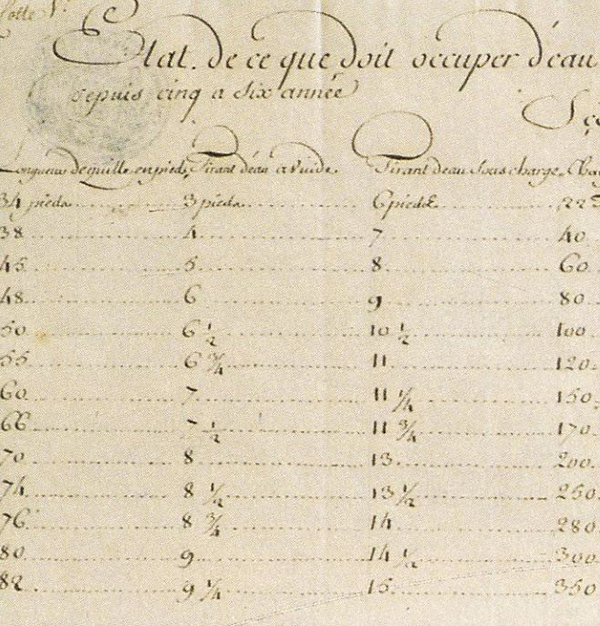 Cotte N.
Etat. de ce que doit occuper d'eau
depuis cinq a six année
Longueur de quille en pieds, Tirant d'eau a vuide. Tirant d'eau sous charge.
34 pieds 3 pieds 6 pieds 22
38 4 7 40
45 5 8 60
48 6 9 80
50 6 1/2 10 1/2 100
55 6 3/4 11 120
60 7 11 1/4 150
66 7 1/2 11 3/4 170
70 8 13 200
74 8 1/2 13 1/2 250
76 8 3/4 14 280
80 9 14 1/2 300
82 9 1/4 15 350